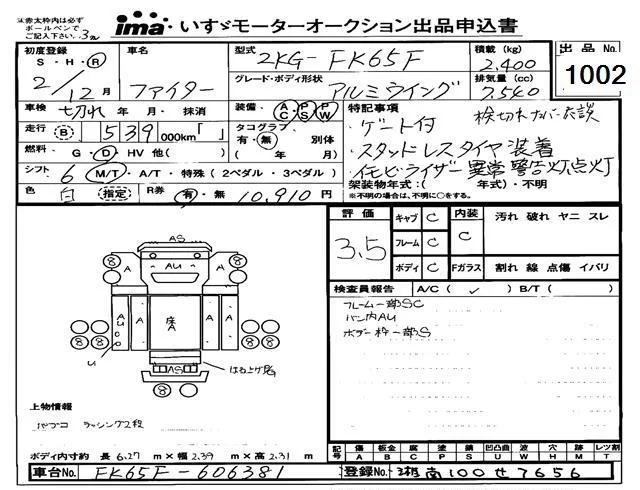 ※赤太枠内は必ず
ボールペンで
ご記入下さい。
ima いすゞモーターオークション出品申込書
初度登録 車名 型式 2KG-FK65F 積載(kg) 2,400 出品No.
S・H・R
2/12月 ファイター グレード・ボディ形状 アルミウイング 排気量(cc) 7,540 1002
車検 切れ 年 月・抹消 装備 AC PS PW 特記事項 検切れナンバー応談
走行 B 539 000km「 」 タコグラフ 有・無 別体 ・ゲート付
燃料 G・D・HV 他( ) ( 年 月) ・スタッドレスタイヤ装着
シフト 6 M/T・A/T・特殊(2ペダル・3ペダル) ・イモビライザー異常警告灯点灯
色 白 指定 R券 有・無 10,910円 架装物年式:( 年式)・不明
※不明の場合は、不明に○をする。
評価 3.5 キャブ C 内装 C 汚れ 破れ ヤニ スレ
フレーム C
ボディ C Fガラス 割れ 線 点傷 イバリ
検査員報告 A/C( ✓ ) B/T( )
フレーム一部SC
バン内AU
ボデー枠一部S
AS
8 A AU A 8
8 8
A U A 床A A A
U
AS はね上げPG
8 8
上物情報
パブコ ラッシング2段
ボディ内寸約 長 6.27 m×幅 2.39 m×高 2.31 m
記号 傷 板金 腐 塗 錆 凹凸曲 波 穴 跡 レンズ割
A B C P S U W H M T
車台No. FK65F-606381 登録No. 南100せ7656